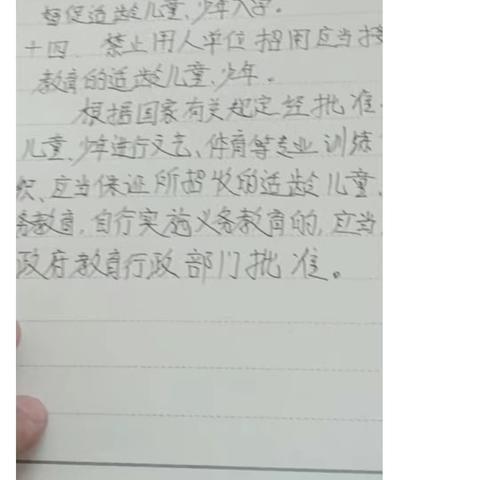 督促适龄儿童、少年入学。
十四 禁止用人单位招用应当接
教育的适龄儿童、少年。
根据国家有关规定经批准
儿童、少年进行文艺、体育等专业训练
织、应当保证所招收的适龄儿童、
务教育,自行实施义务教育的,应当
政府教育行政部门批准。